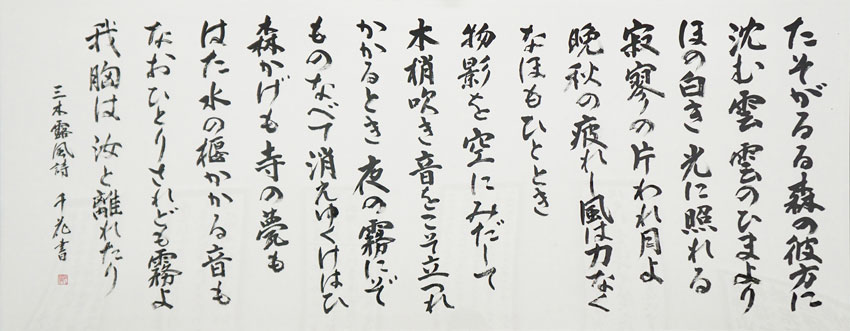 たそがるる森の彼方に
沈む雲雲のひまより
ほの白き光に照れる
寂寥の片われ月よ
晩秋の疲れし風は力なく
なほもひととき
物影を空にみだして
木梢吹き音をこそ立つれ
かかるとき夜の霧にぞ
ものなべて消えゆくけはひ
森かげも寺の甍も
はた水の樞かかる音も
なおひとりされども霧よ
我胸は汝と離れたり
三木露風詩 千花書